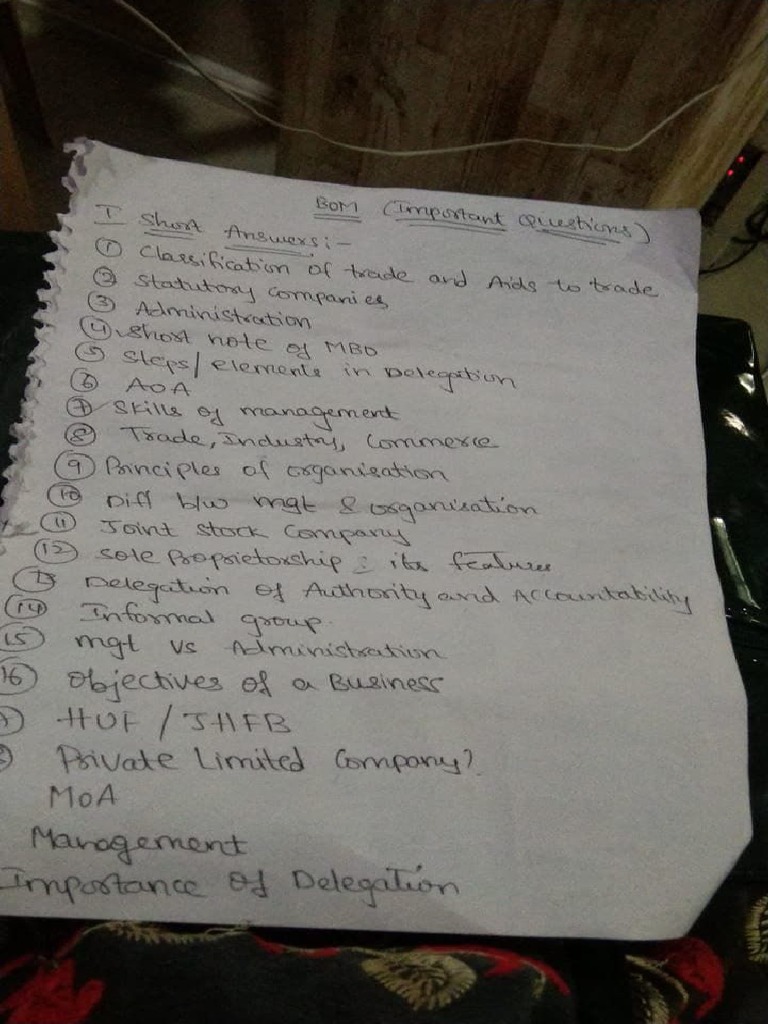 BOM (Important Questions)
I Short Answers:-
① Classification of trade and Aids to trade
② Statutory Companies
③ Administration
④ Short note of MBO
⑤ Steps/elements in Delegation
⑥ AOA
⑦ Skills of management
⑧ Trade, Industry, Commerce
⑨ Principles of organisation
⑩ Diff b/w mgt & organisation
⑪ Joint Stock Company
⑫ Sole Proprietorship : its features
⑬ Delegation of Authority and Accountability
⑭ Informal group.
⑮ mgt vs Administration
⑯ Objectives of a Business
HUF / JHFB
Private Limited Company?
MoA
Management
Importance Of Delegation